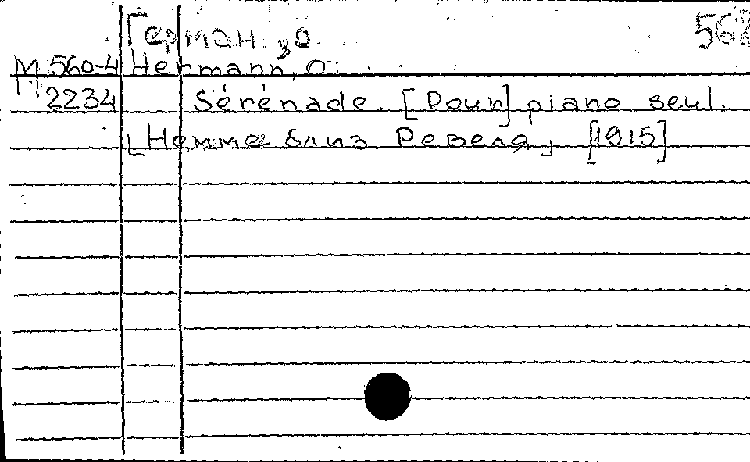 Герман, О. 567
М 560-4 Hermann, O.
2234 Sérénade. [Pour] piano seul.
[Немме близ Ревеля, [1915]